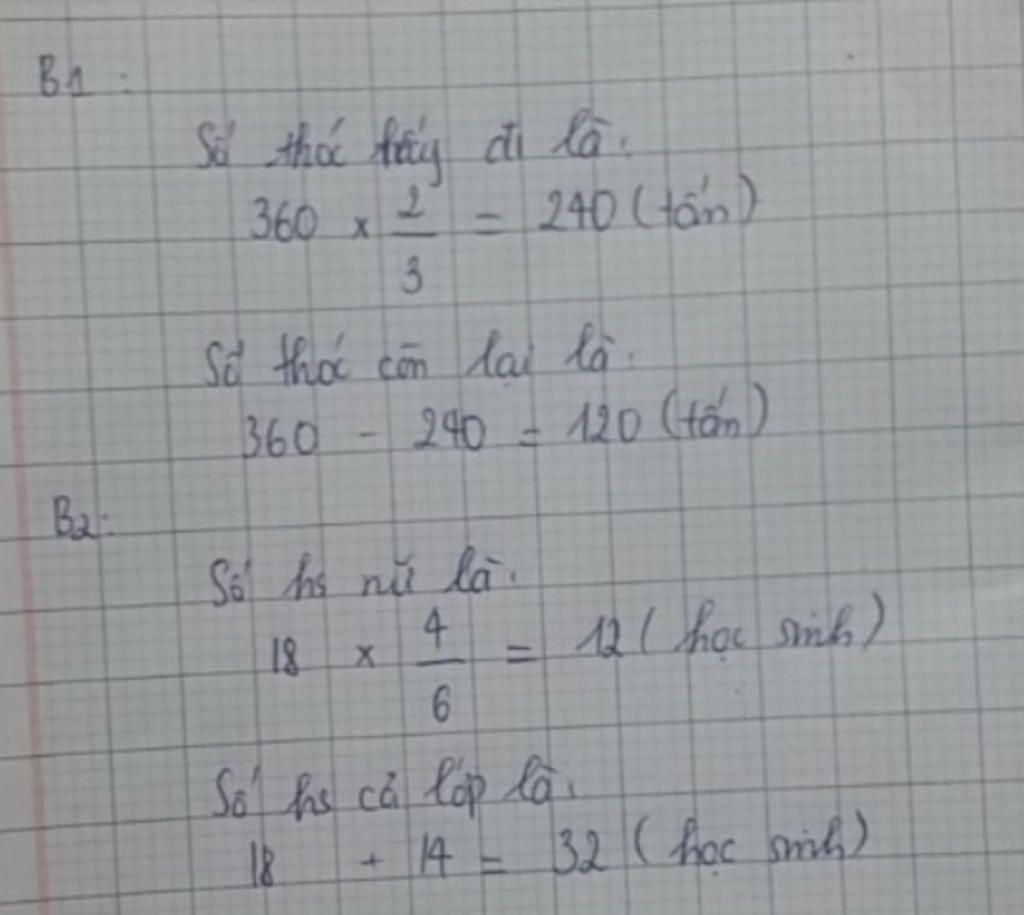 B1:
Số thóc lấy đi là:
360 × 2/3 = 240 (tấn)
Số thóc còn lại là:
360 - 240 = 120 (tấn)
B2:
Số hs nữ là:
18 × 4/6 = 12 (học sinh)
Số hs cả lớp là:
18 + 14 = 32 (học sinh)